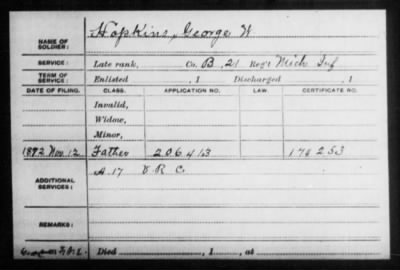 NAME OF SOLDIER: Hopkins, George W.
SERVICE: Late rank, Co. B, 21 Reg't Mich Inf
TERM OF SERVICE: Enlisted , 1 Discharged , 1
DATE OF FILING. CLASS. APPLICATION NO. LAW. CERTIFICATE NO.
Invalid,
Widow,
Minor,
1872 Nov. 12 Father 206413 176253
ADDITIONAL SERVICES: A. 17 V R C
REMARKS:
Died , 1 , at